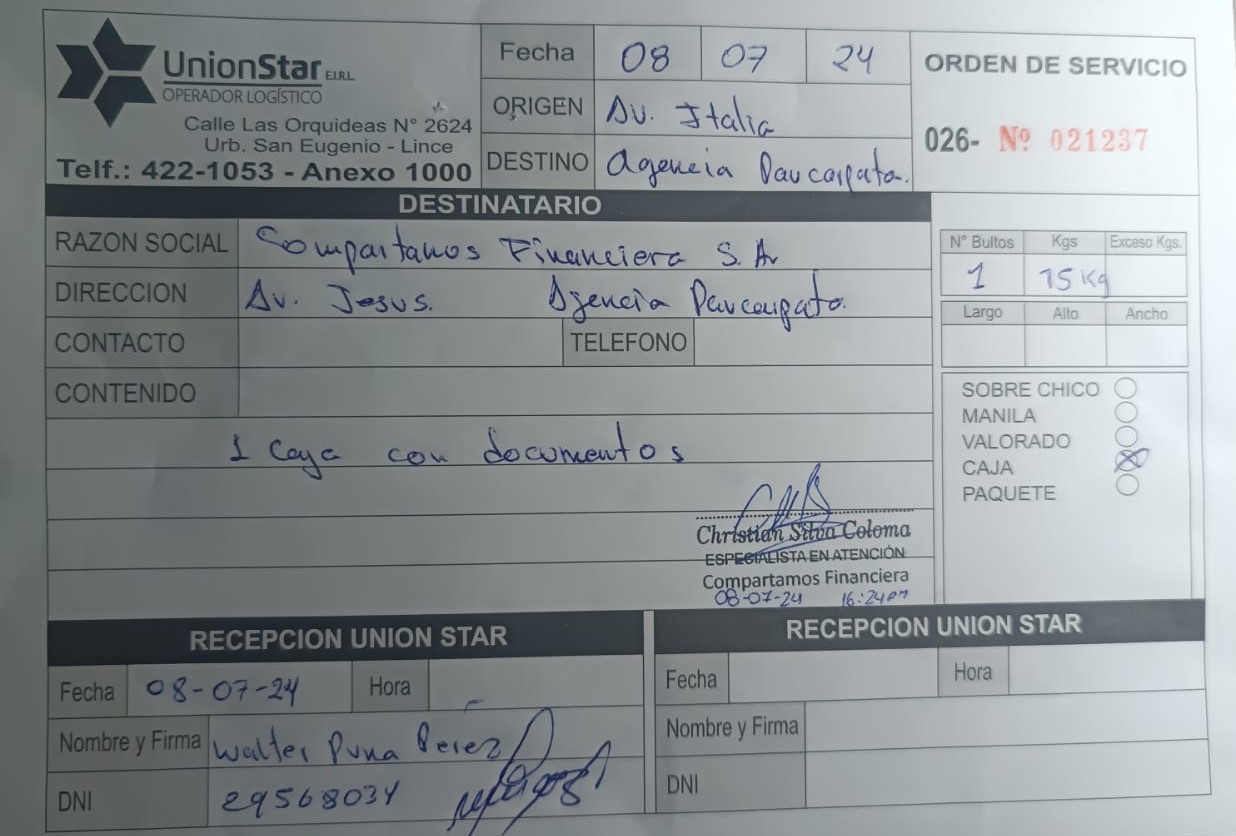 UnionStar E.I.R.L
OPERADOR LOGÍSTICO
Calle Las Orquideas N° 2624
Urb. San Eugenio - Lince
Telf.: 422-1053 - Anexo 1000
Fecha 08 07 24
ORIGEN Av. Italia
DESTINO Agencia Paucarpata.
ORDEN DE SERVICIO
026- Nº 021237
DESTINATARIO
RAZON SOCIAL Compartamos Financiera S.A.
DIRECCION Av. Jesus. Agencia Paucarpata.
CONTACTO TELEFONO
CONTENIDO
1 Caja con documentos
N° Bultos Kgs Exceso Kgs.
1 15 Kg
Largo Alto Ancho
SOBRE CHICO
MANILA
VALORADO
CAJA
PAQUETE
Christian Silva Coloma
ESPECIALISTA EN ATENCIÓN
Compartamos Financiera
08-07-24 16:24pm
RECEPCION UNION STAR
Fecha 08-07-24 Hora
Nombre y Firma Walter Puma Perez
DNI 29568034
RECEPCION UNION STAR
Fecha Hora
Nombre y Firma
DNI